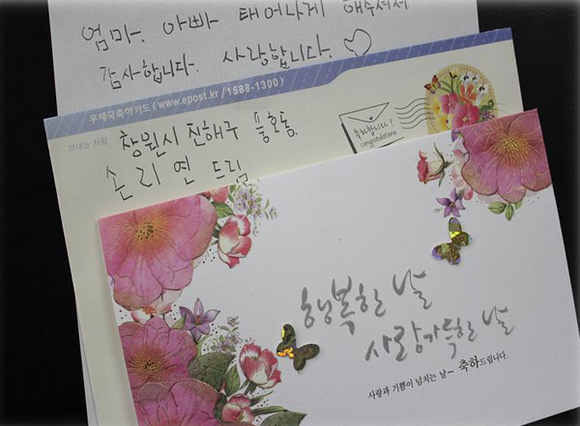 엄마, 아빠 태어나게 해주셔서
감사합니다. 사랑합니다. ♡
우체국축하카드 (www.epost.kr / 1588-1300)
보내는 사람
창원시 진해구 풍호동
손리연 드림
축하합니다!
congratulations
행복한 날
사랑가득한 날
사랑과 기쁨이 넘치는 날~ 축하드립니다.